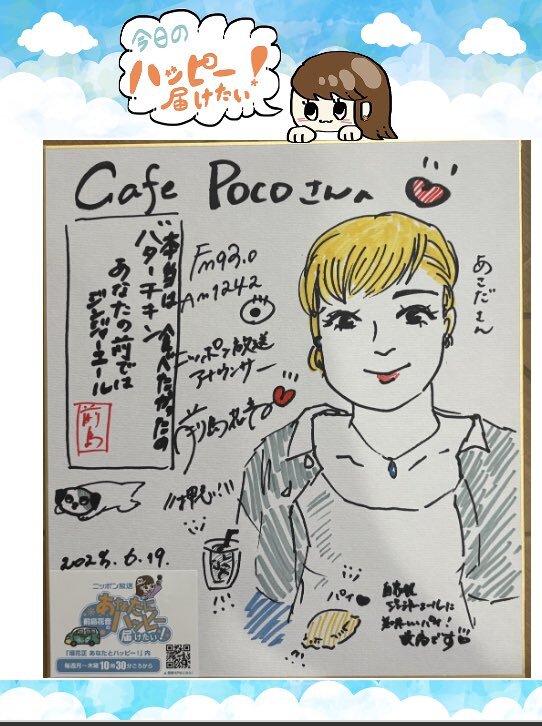 今日の
ハッピー
届けたい!
Cafe Pocoさんへ
本当は 食べたかったの
バターチキン
あなたの前では
ジンジャーエール
前島
Fm93.0
Am1242
ニッポン放送
アナウンサー
前島花音
あこださん
2025.6.19.
パイ
自家製
ジンジャーエールに
パイ!
最高です
ニッポン放送
前島花音の
あなたにハッピー届けたい!
「垣花正 あなたとハッピー!」内
毎週月〜木曜10時30分ごろから